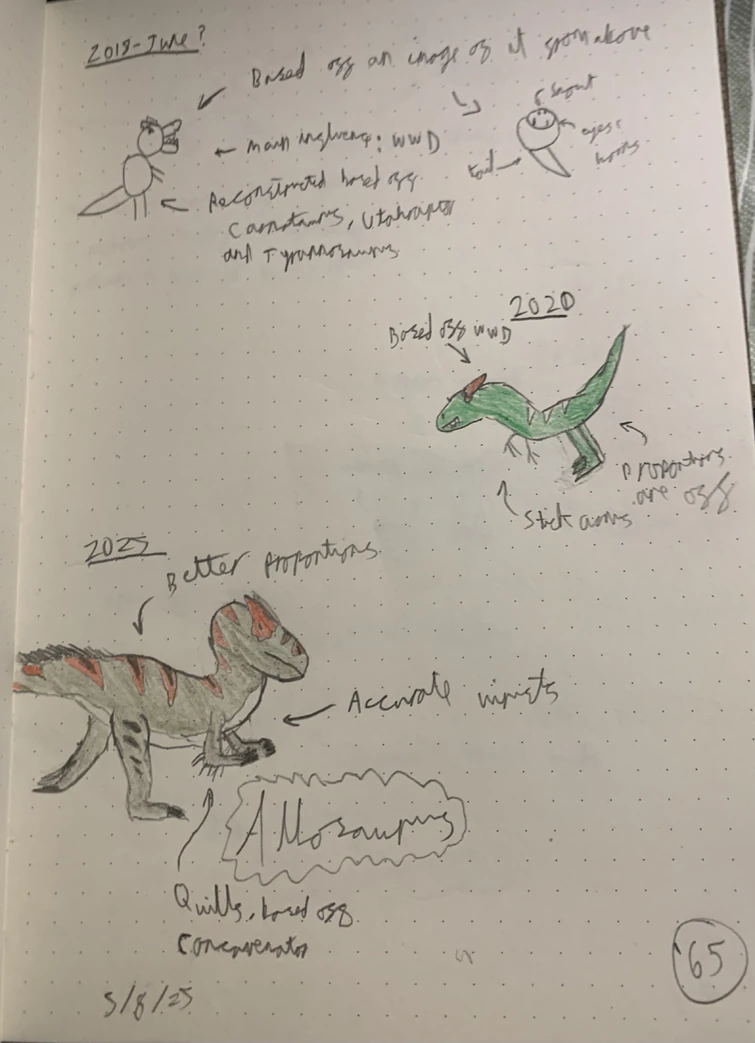 2018-June?
Based off an image of it from above
snout
eyes
horns
tail
Main influence: WWD
Reconstructed based off
Carnotaurus, Utahraptor
and Tyrannosaurus
2020
Based off WWD
Proportions
are off
Stick arms
2025
Better proportions
Accurate wrists
Allosaurus
Quills, based off
Concavenator
65
5/8/25